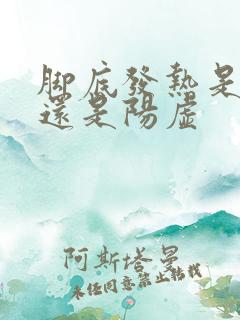 脚底發熱是
還是陽虛
阿斯塔曼
未經同意禁止轉載